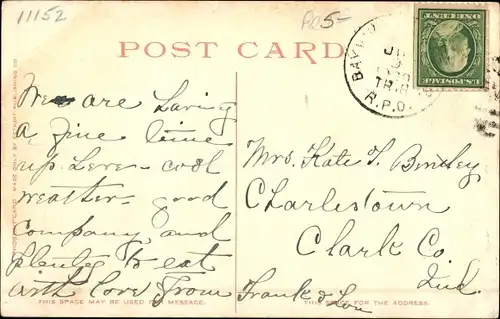 11152
5-
POST CARD
ONE CENT
U.S. POSTAGE
BAY
R.P.O.
We are having
a fine time
up here - cool
weather - good
company and
plenty to eat
with love from
Frank & Lou
Mrs. Kate T. Bentley
Charlestown
Clark Co.
Ind.
THIS SPACE MAY BE USED FOR MESSAGE.
THIS SPACE FOR THE ADDRESS.